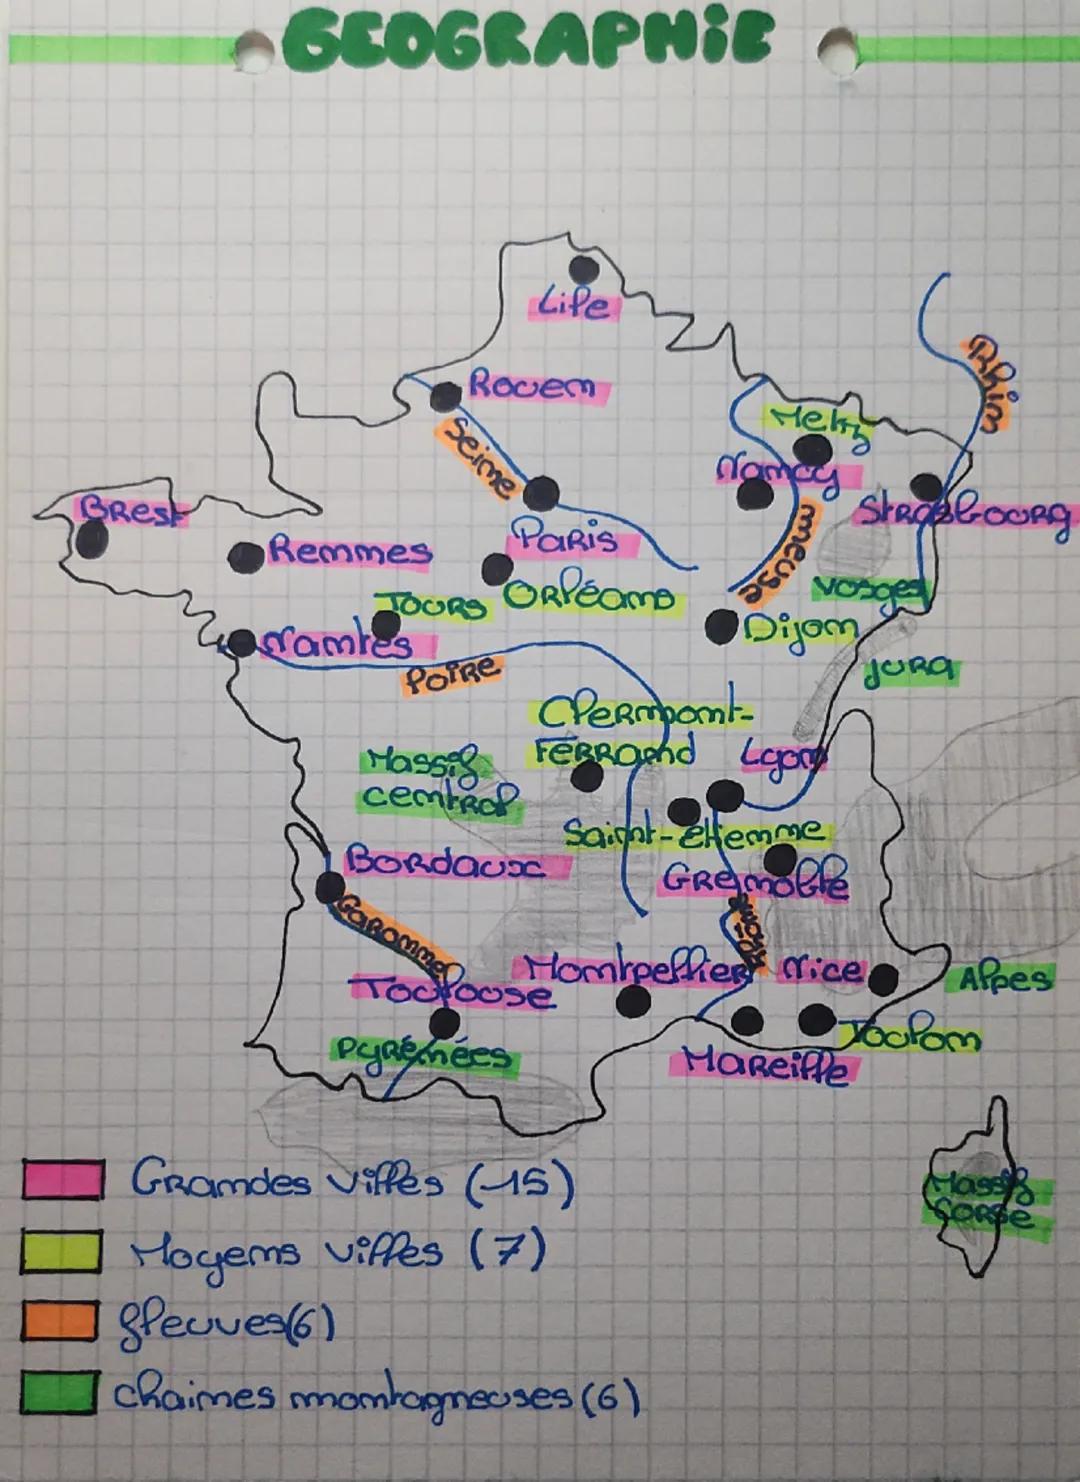 GEOGRAPHiE
Lille
Rouen
Seine
Rhin
Metz
Nancy
Strasbourg
Brest
Rennes
Paris
Orléans
Tours
meuse
vosges
Dijon
Nantes
Loire
jura
Clermont-
Ferrand
Lyon
Massif
central
Saint-etienne
Bordaux
Grenoble
Garonne
Rhône
Montpellier
Nice
Alpes
Toulouse
Toulon
pyrénées
Mareille
Massif
Corse
Grandes villes (15)
Moyens villes (7)
fleuves(6)
chaines montagneuses (6)